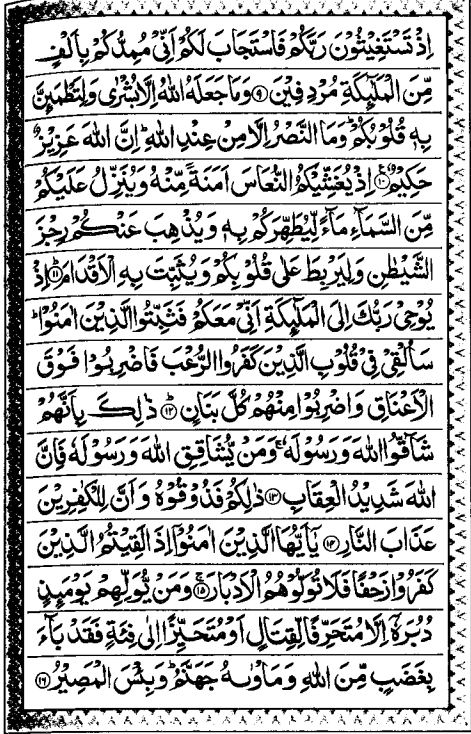 اِذْ تَسْتَغِيْثُوْنَ رَبَّكُمْ فَاسْتَجَابَ لَكُمْ اَنِّىْ مُمِدُّكُمْ بِاَلْفٍ
مِّنَ الْمَلٰٓئِكَةِ مُرْدِفِيْنَ ۹ وَمَا جَعَلَهُ اللّٰهُ اِلَّا بُشْرٰى وَلِتَطْمَئِنَّ
بِهٖ قُلُوْبُكُمْ ؕ وَمَا النَّصْرُ اِلَّا مِنْ عِنْدِ اللّٰهِ ؕ اِنَّ اللّٰهَ عَزِيْزٌ
حَكِيْمٌ ۱۰ اِذْ يُغَشِّيْكُمُ النُّعَاسَ اَمَنَةً مِّنْهُ وَيُنَزِّلُ عَلَيْكُمْ
مِّنَ السَّمَآءِ مَآءً لِّيُطَهِّرَكُمْ بِهٖ وَيُذْهِبَ عَنْكُمْ رِجْزَ
الشَّيْطٰنِ وَلِيَرْبِطَ عَلٰى قُلُوْبِكُمْ وَيُثَبِّتَ بِهِ الْاَقْدَامَ ۱۱ اِذْ
يُوْحِىْ رَبُّكَ اِلَى الْمَلٰٓئِكَةِ اَنِّىْ مَعَكُمْ فَثَبِّتُوا الَّذِيْنَ اٰمَنُوْا ؕ
سَاُلْقِىْ فِىْ قُلُوْبِ الَّذِيْنَ كَفَرُوا الرُّعْبَ فَاضْرِبُوْا فَوْقَ
الْاَعْنَاقِ وَاضْرِبُوْا مِنْهُمْ كُلَّ بَنَانٍ ۱۲ ذٰلِكَ بِاَنَّهُمْ
شَآقُّوا اللّٰهَ وَرَسُوْلَهٗ ۚ وَمَنْ يُّشَاقِقِ اللّٰهَ وَرَسُوْلَهٗ فَاِنَّ
اللّٰهَ شَدِيْدُ الْعِقَابِ ۱۳ ذٰلِكُمْ فَذُوْقُوْهُ وَاَنَّ لِلْكٰفِرِيْنَ
عَذَابَ النَّارِ ۱۴ يٰۤاَيُّهَا الَّذِيْنَ اٰمَنُوْۤا اِذَا لَقِيْتُمُ الَّذِيْنَ
كَفَرُوْا زَحْفًا فَلَا تُوَلُّوْهُمُ الْاَدْبَارَ ۱۵ وَمَنْ يُّوَلِّهِمْ يَوْمَئِذٍ
دُبُرَهٗۤ اِلَّا مُتَحَرِّفًا لِّقِتَالٍ اَوْ مُتَحَيِّزًا اِلٰى فِئَةٍ فَقَدْ بَآءَ
بِغَضَبٍ مِّنَ اللّٰهِ وَمَاْوٰىهُ جَهَنَّمُ ؕ وَبِئْسَ الْمَصِيْرُ ۱۶